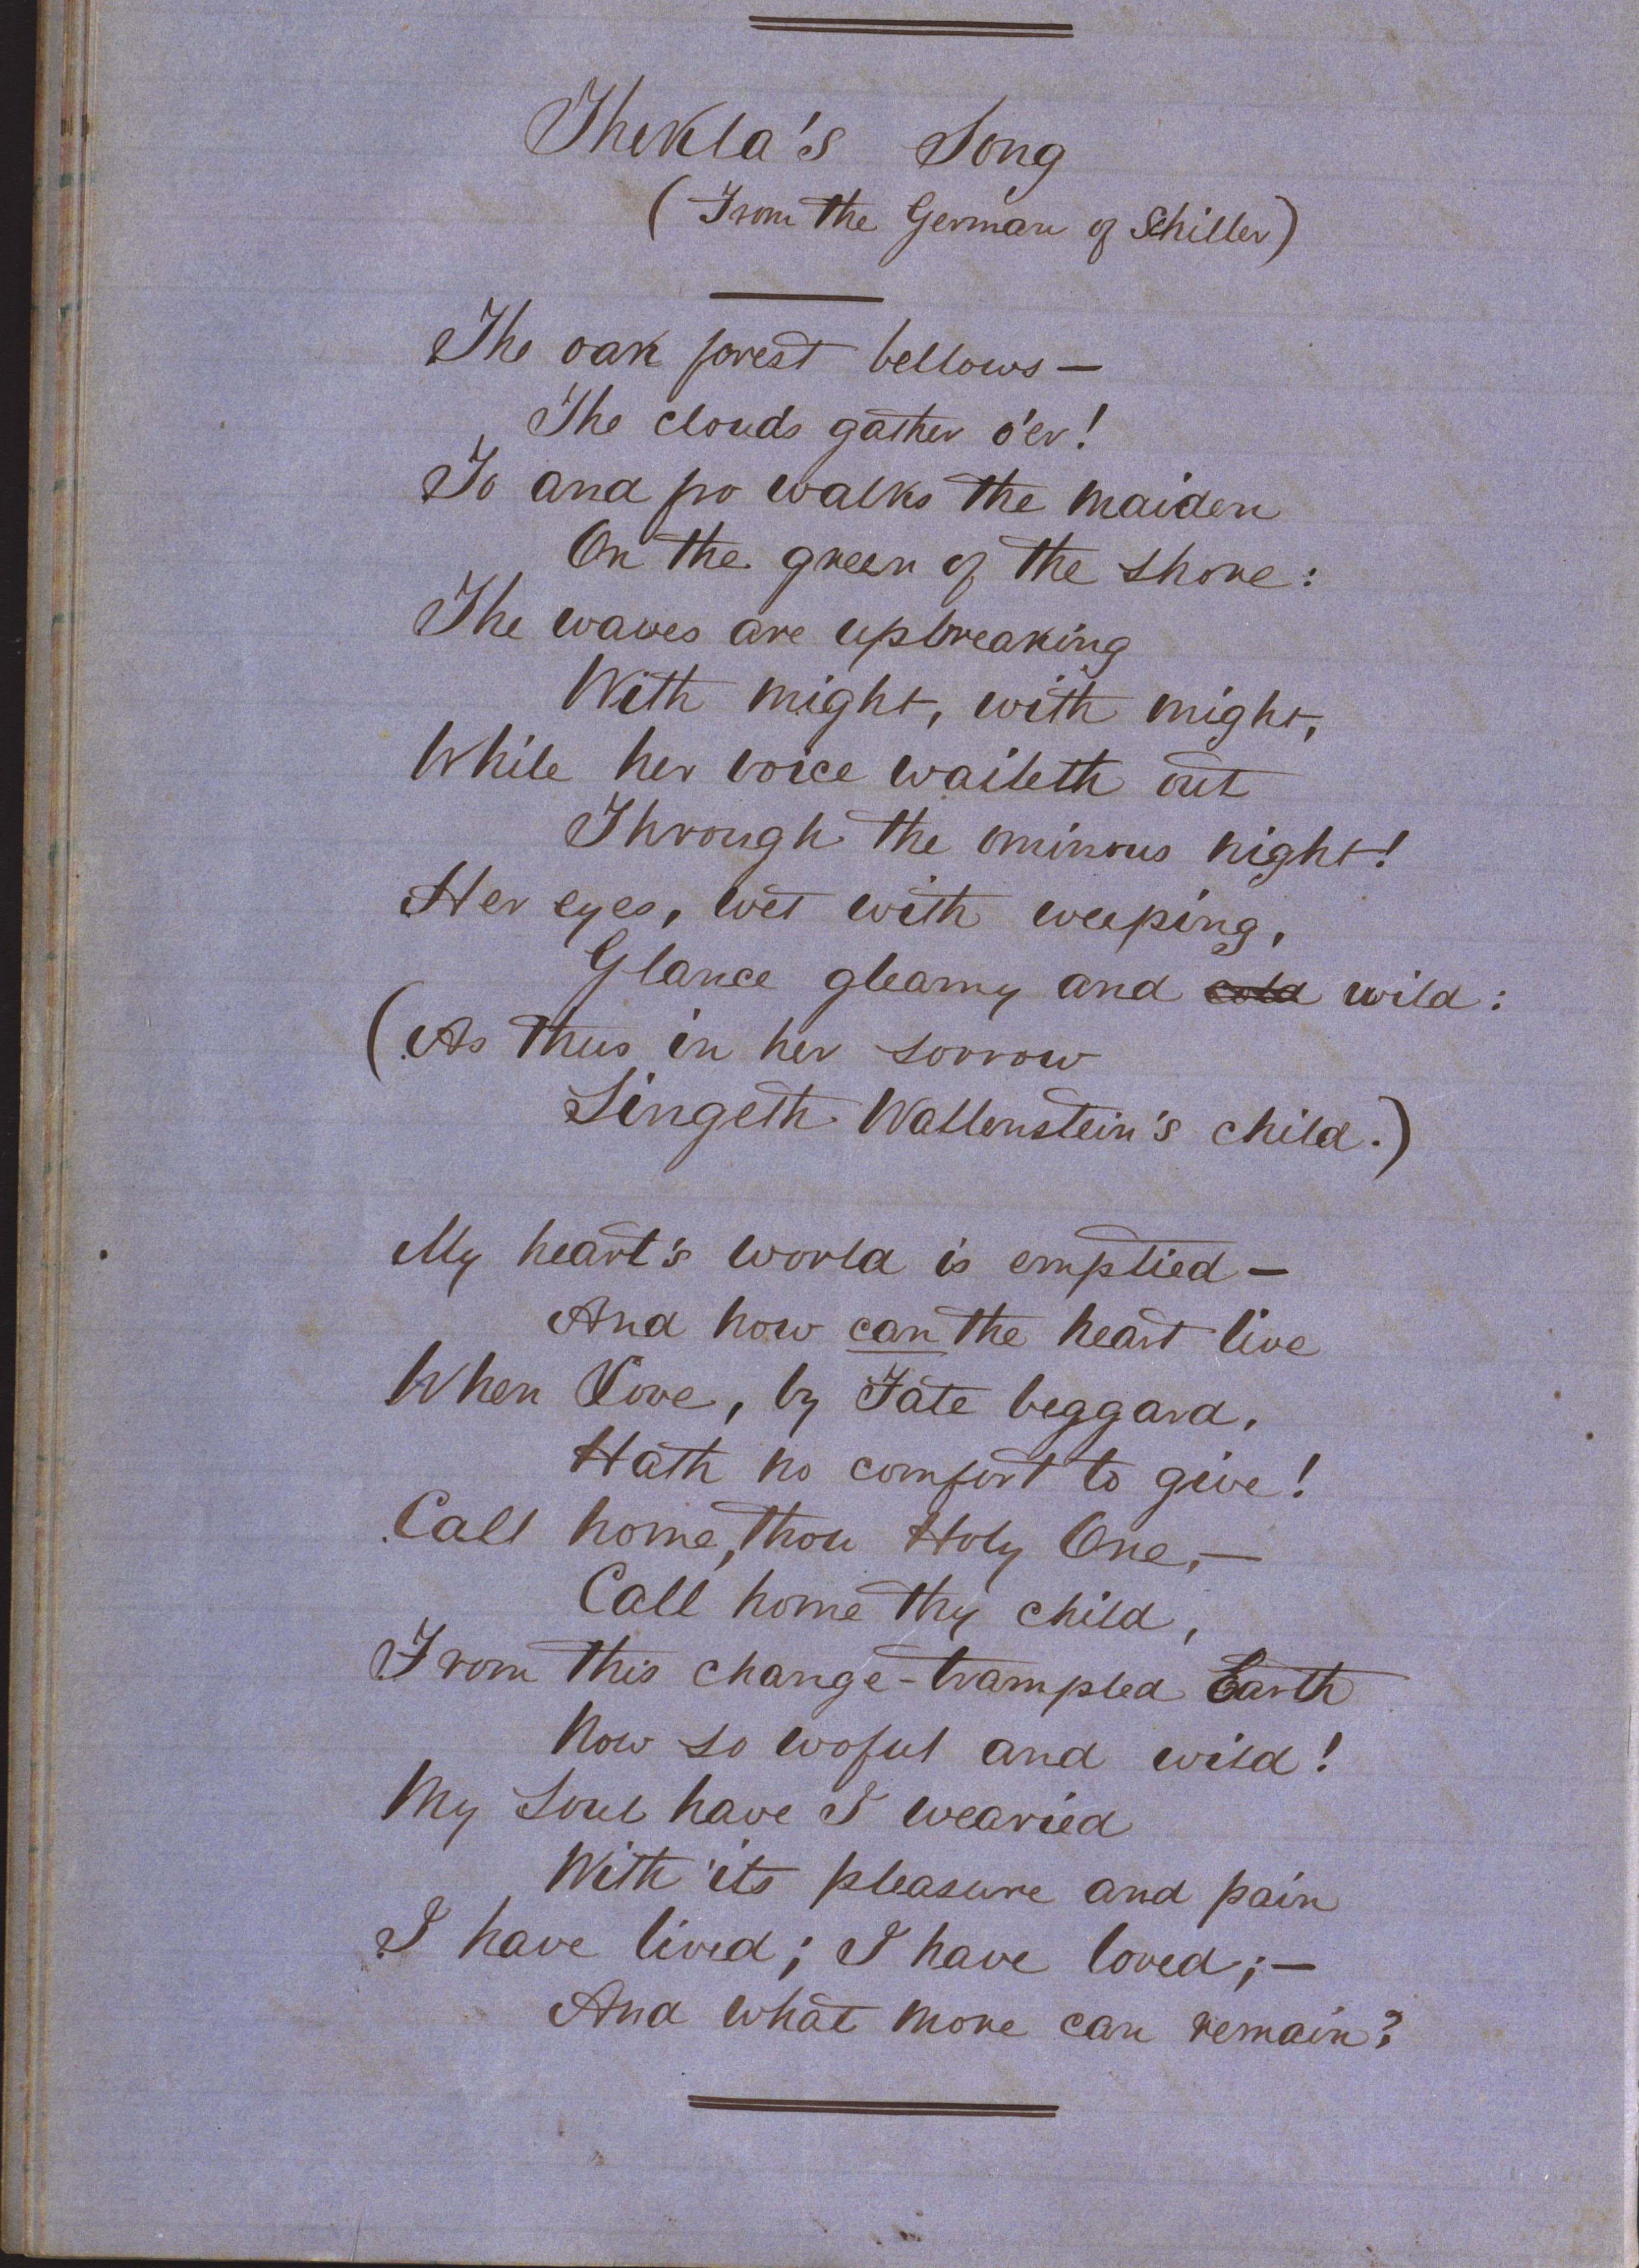 Thekla's Song
(From the German of Schiller)
The oak forest bellows—
The clouds gather o'er!
To and fro walks the maiden
On the green of the shore:
The waves are upbreaking
With might, with might,
While her voice waileth out
Through the ominous night!
Her eyes, wet with weeping,
Glance gleamy and cold wild:
(As thus in her sorrow
Singeth Wallenstein's child.)
My heart's world is emptied—
And how can the heart live
When Love, by Fate beggard,
Hath no comfort to give!
Call home, thou Holy One,—
Call home thy child,
From this change-trampled Earth
Now so woful and wild!
My Soul have I wearied
With its pleasure and pain
I have lived; I have loved;—
And what more can remain?